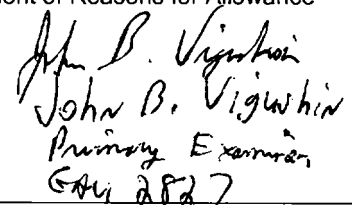 ent of Reasons for Allowance
John B. Vigushin
John B. Vigushin
Primary Examiner
GAU 2827